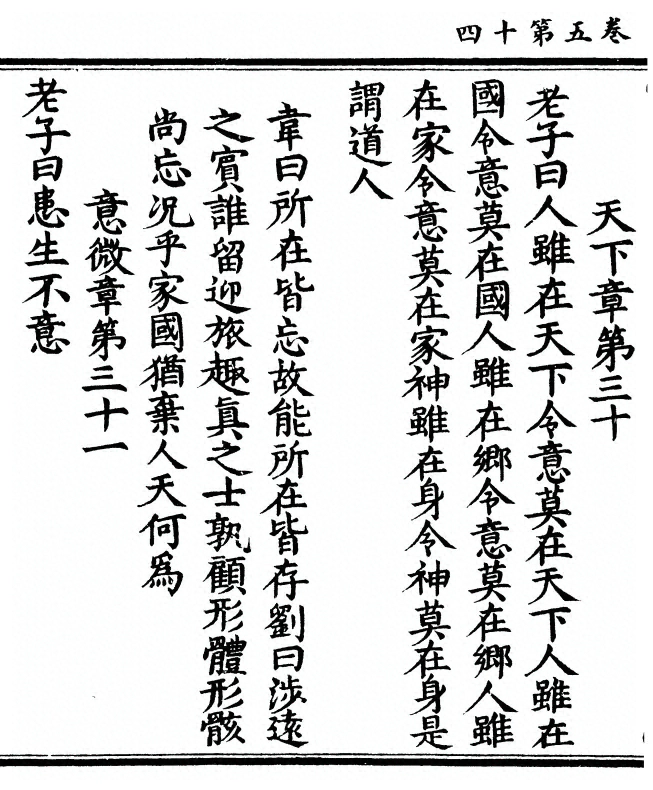 卷五第十四
天下章第三十
老子曰人雖在天下令意莫在天下人雖在
國令意莫在國人雖在鄉令意莫在鄉人雖
在家令意莫在家神雖在身令神莫在身是
謂道人
韋曰所在皆忘故能所在皆存劉曰涉遠
之賓誰留迎旅趣真之士孰顧形體形骸
尚忘况乎家國猶棄人天何爲
意微章第三十一
老子曰患生不意